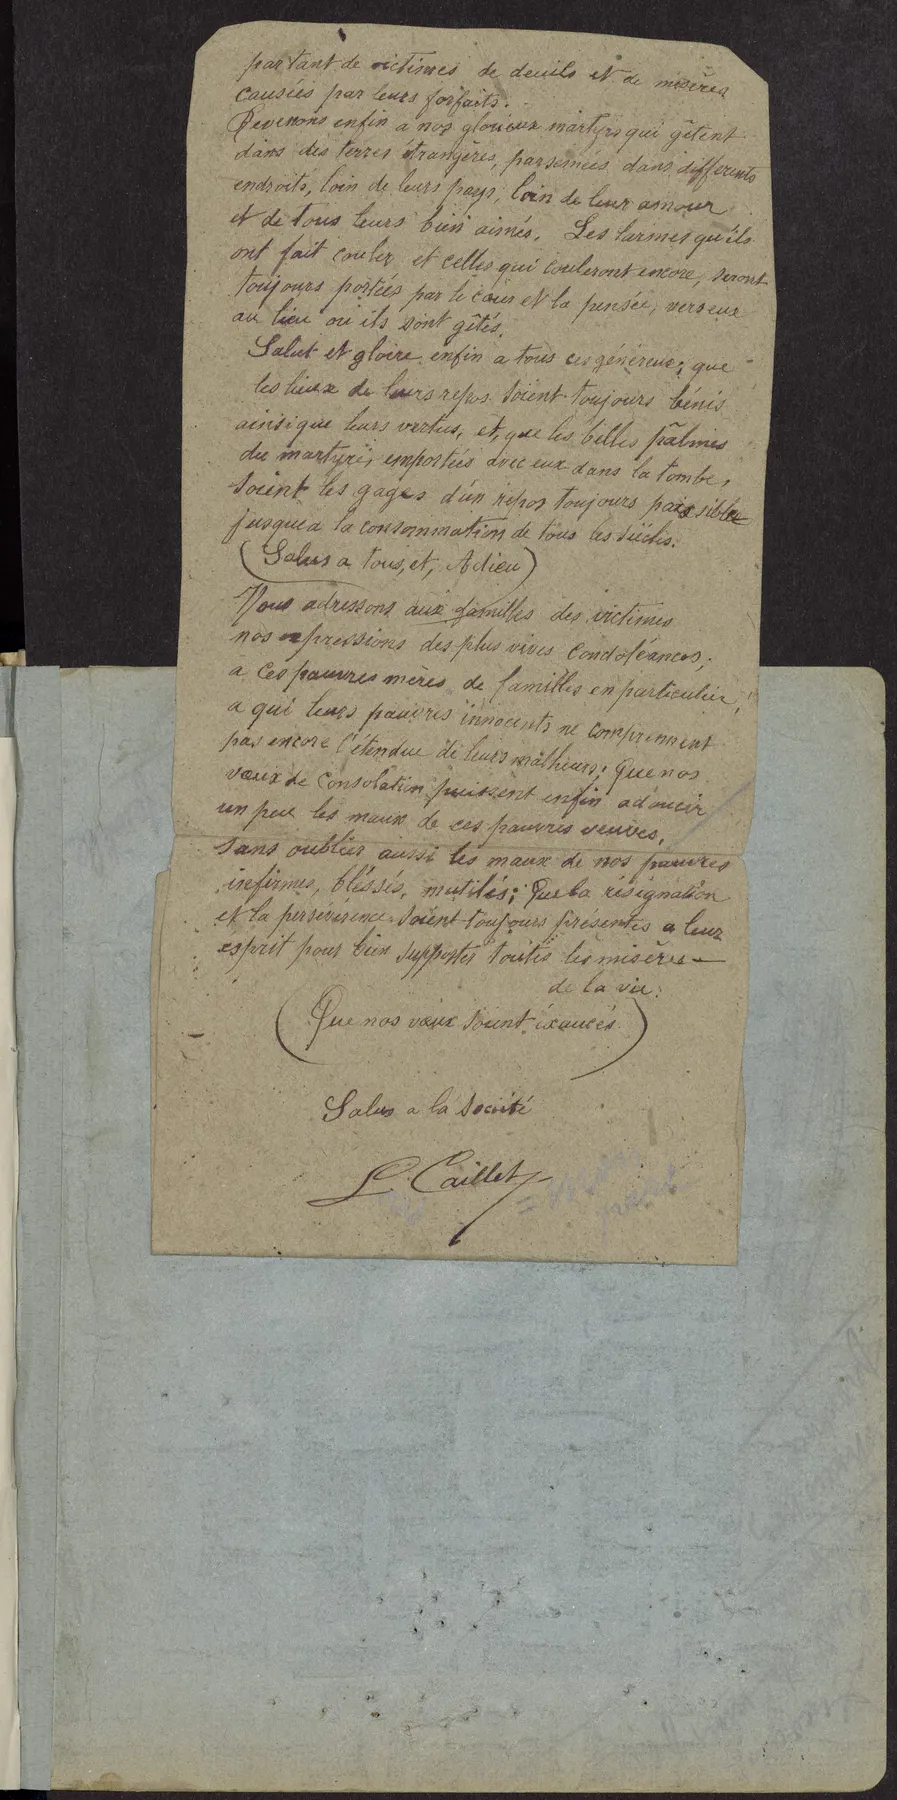 par tant de victimes de deuils et de misères
causées par leurs forfaits.
Revenons enfin a nos glorieux martyrs qui gîtent
dans des terres étrangères, parsemées dans différents
endroits, loin de leurs pays, loin de leur amour
et de tous leurs bien aimés. Les larmes qu'ils
ont fait couler et celles qui couleront encore, seront
toujours portées par le cœur et la pensée, vers eux
au lieu ou ils sont gîtés.
Salut et gloire enfin a tous ces généreux; que
les lieux de leurs repos soient toujours bénis
ainsi que leurs vertus, et, que les belles palmes
du martyre, emportées avec eux dans la tombe,
soient les gages d'un repos toujours paisible
jusqu'a la consommation de tous les siècles.
(Salus a tous, et, Adieu)
Nous adressons aux familles des victimes
nos expressions des plus vives condoléances,
a ces pauvres mères de familles en particulier,
a qui leurs pauvres innocents ne comprennent
pas encore l'étendue de leurs malheurs; Que nos
vœux de consolation puissent enfin adoucir
un peu les maux de ces pauvres veuves,
sans oublier aussi les maux de nos pauvres
infirmes, bléssés, mutilés; Que la résignation
et la persévérence soient toujours présentes a leur
esprit pour bien supporter toutes les misères
de la vie.
(Que nos vœux soient éxaucés)
Salus a la Société
L. Caillet